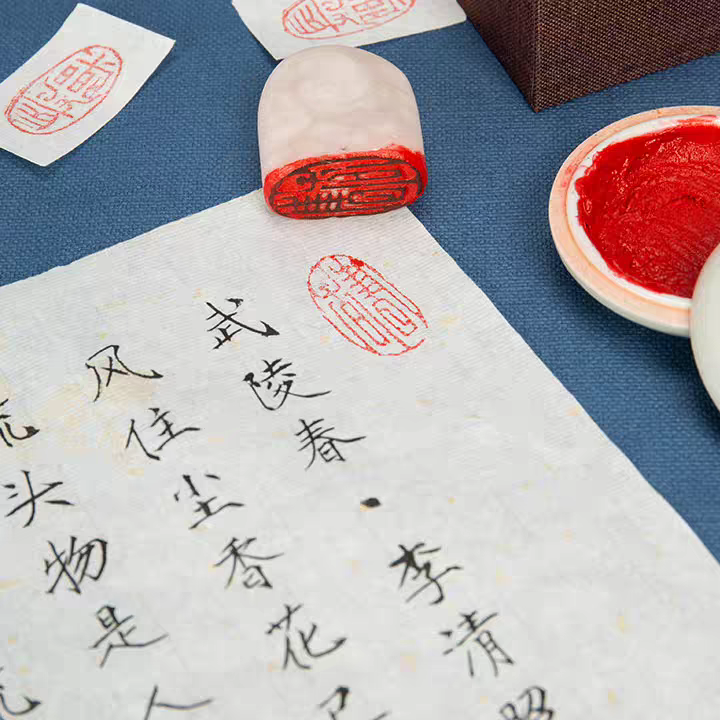 武陵春·李清照
风住尘香花已
头物是人